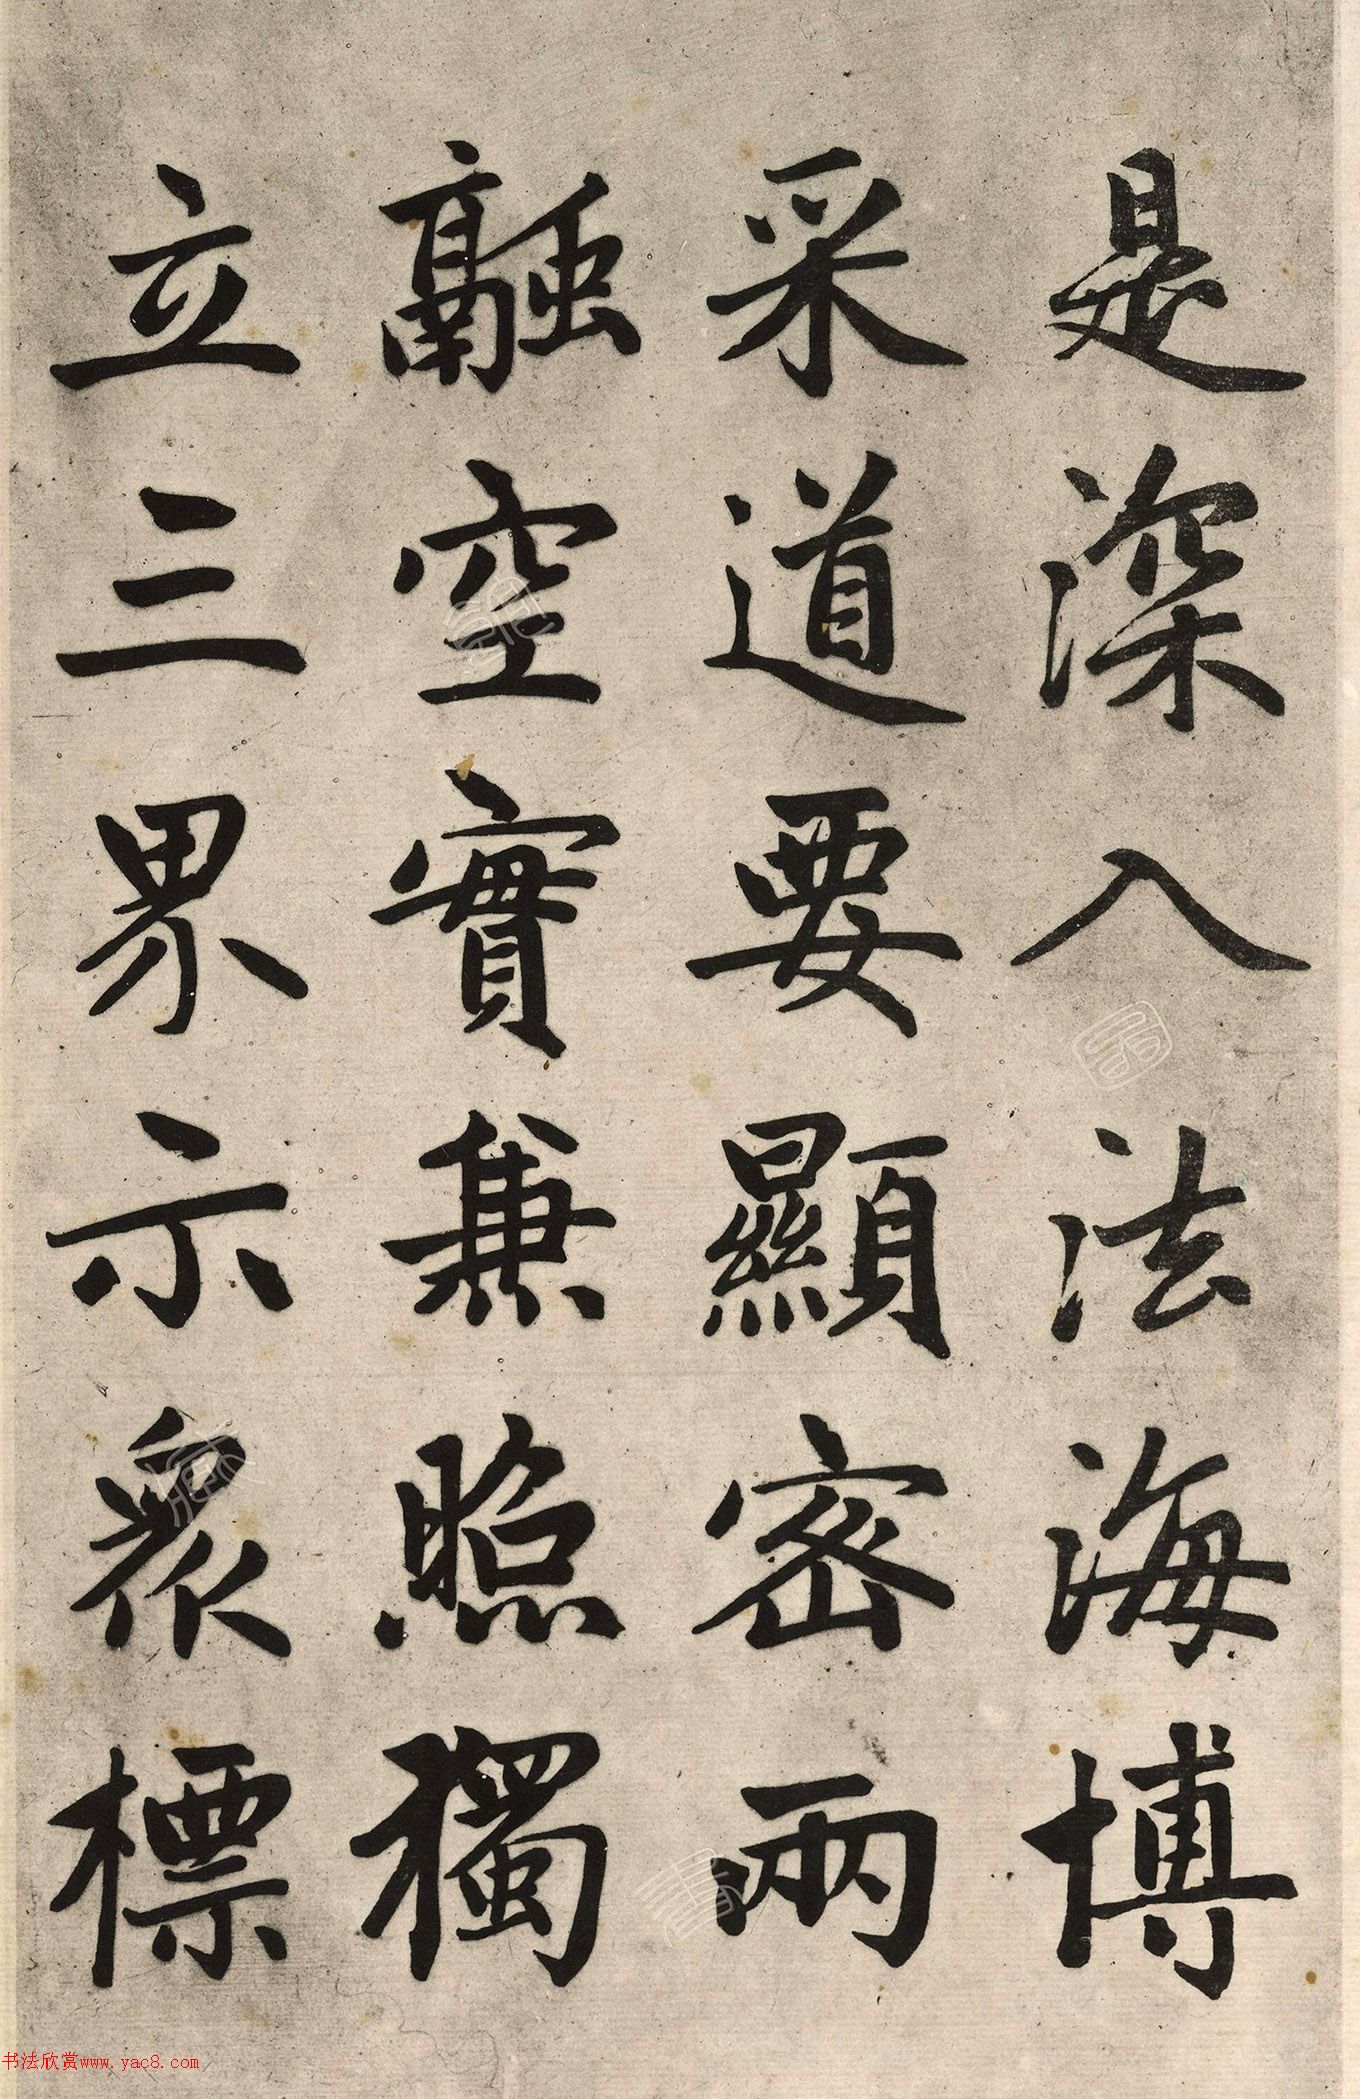 是深入法海博
采道要顯密兩
融空實兼照獨
立三界示眾標
书法欣赏www.yac8.com